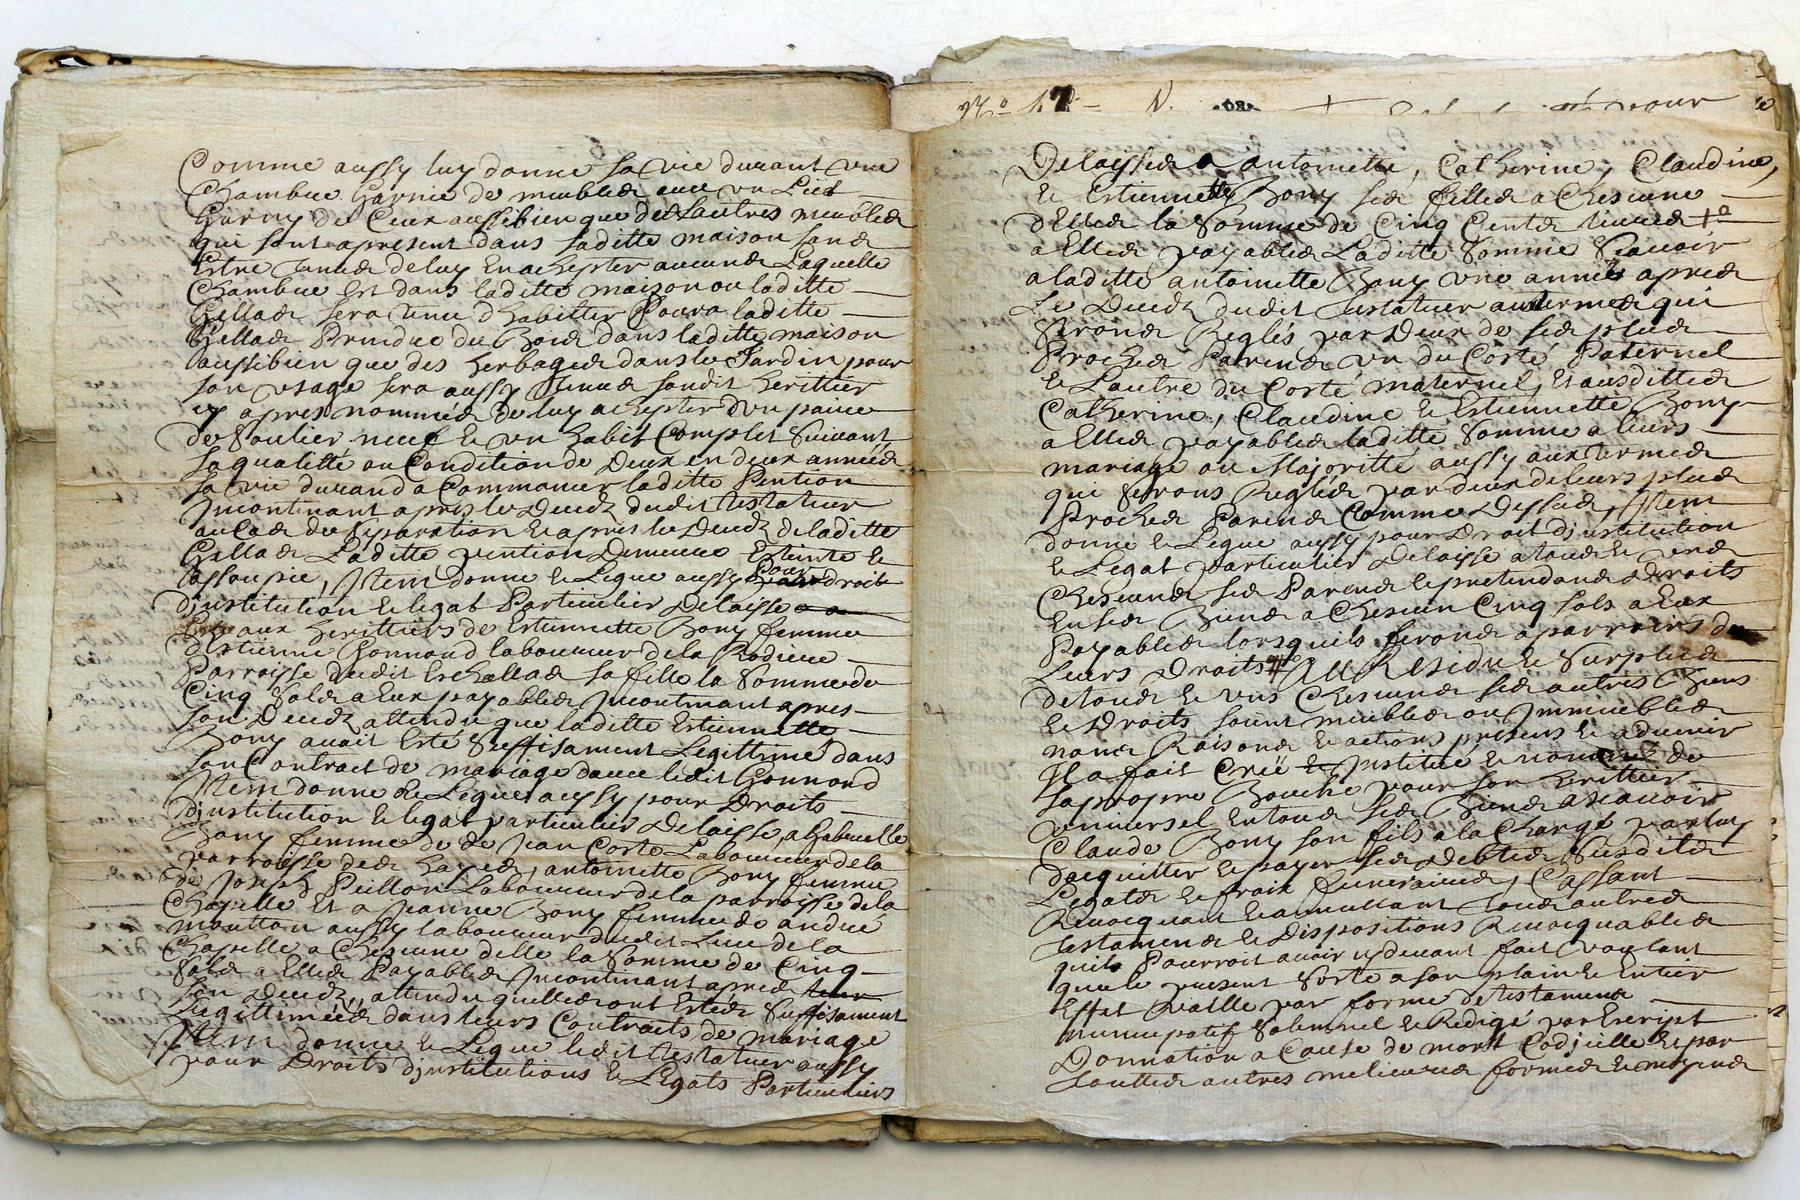 Comme aussy luy donne sa vie durant une
Chambre Garnie de meubles avec un Lict
Garny de Ceux aussibien que des autres meubles
qui sont apresent dans saditte maison sans
Estre tenues de luy En achepter aucuns Laquelle
Chambre Est dans laditte maison ou laditte
sera tenue d'habitter Poura laditte
Prendre du Bois dans laditte maison
aussibien que des herbages dans le Jardin pour
son usage sera aussy tenues sondit heritier
cy apres nommées de luy achepter d'un paire
de Soulier neuf et un habit Complet Suivant
sa qualitté ou Condition de deux en deux années
sa vie durand a Commancer laditte Pention
Incontinant apres le Deceds dudit testateur
au Cas de Separation et apres le Deceds de laditte
Laditte pention Demeure Esteinte et
assoupie, Item donne et Legue aussy Pour droit
d'institution et legat Particulier delaisse
aux herittiers de Estiennette Bony femme
d'Estienne Gonnond laboureur de la Rodiere
Parroisse dudit Eschallas sa fille la Somme de
Cinq Sols a Eux payables Incontinant apres
son Deceds attendu que laditte Estiennette
Bony avait Esté Suffisament Legittime dans
son Contract de mariage d'avec ledit Gonnond
Item donne et Legue aussy pour Droits
d'institution et legat particulier Delaisse, a
Bony femme de Jean Corte Laboureur de la
parroisse des hayes, antoinette Bony femme
de Joseph Peillon Laboureur de la parroisse de la
Chapelle Et a Jeanne Bony femme de andré
moutton aussy laboureur dudit Lieu de la
Chapelle a Chescune d'elle la Somme de Cinq
Sols a Elles Payables Incontinant apres
son Deceds, attendu quelles ont Estés Suffisament
Legittimées dans leurs Contracts de mariage
Item donne et Legue ledit testateur aussy
pour Droits d'institutions et Legats Particuliers
Delaysses a antoinette, Catherine, Claudine,
et Estiennette Bony ses filles a Chescune
d'Elles la Somme de Cinq Cents livres
a Elles payables Laditte Somme Scavoir
a laditte antoinette Bony une année apres
Le Deceds dudit testateur aux termes qui
Seronds Reglés par Deux de ses plus
Proches Parends un du Costé Paternel
et Lautre du Costé maternel, Et ausdittes
Catherine, Claudine et Estiennette Bony
a Elles payables laditte Somme a leurs
mariage ou Majoritté aussy aux termes
qui Serons Reglés par deux de leurs plus
Proches Parends Comme Dessus, Item
donne et Legue aussy pour Droit d'institution
et Legat particulier Delaisse a tous et uns
Chescuns ses Parends et pretendands droits
En ses Biens a Chescun Cinq sols a Eux
Payables lorsquils feronds aparroirs de
Leurs Droits Au Residu et Surplus
de tous et uns Chescuns ses autres Biens
et Droits soint meubles ou Immeubles
noms Raisons et actions presens et advenir
Il a fait Créé et Institué et nommé de
sa propre Bouche pour son heritier
universel En tous ses Biens a scavoir
Claude Bony son fils a la Charge par luy
d'acquitter et payer ses Debtes Susdits
Legats et frais funeraires, Cassant
Revocquant et annullant tous autres
testaments et Dispositions Revocquables
quils Pourroit avoir cy devant fait voulant
que le present Sorte a son plain et Entier
Effet vaille par forme de testament
nuncupatif Solemnel et Redigé par Escript
Donnation a Cause de mort Codicille et par
touttes autres melieures formes et moyends